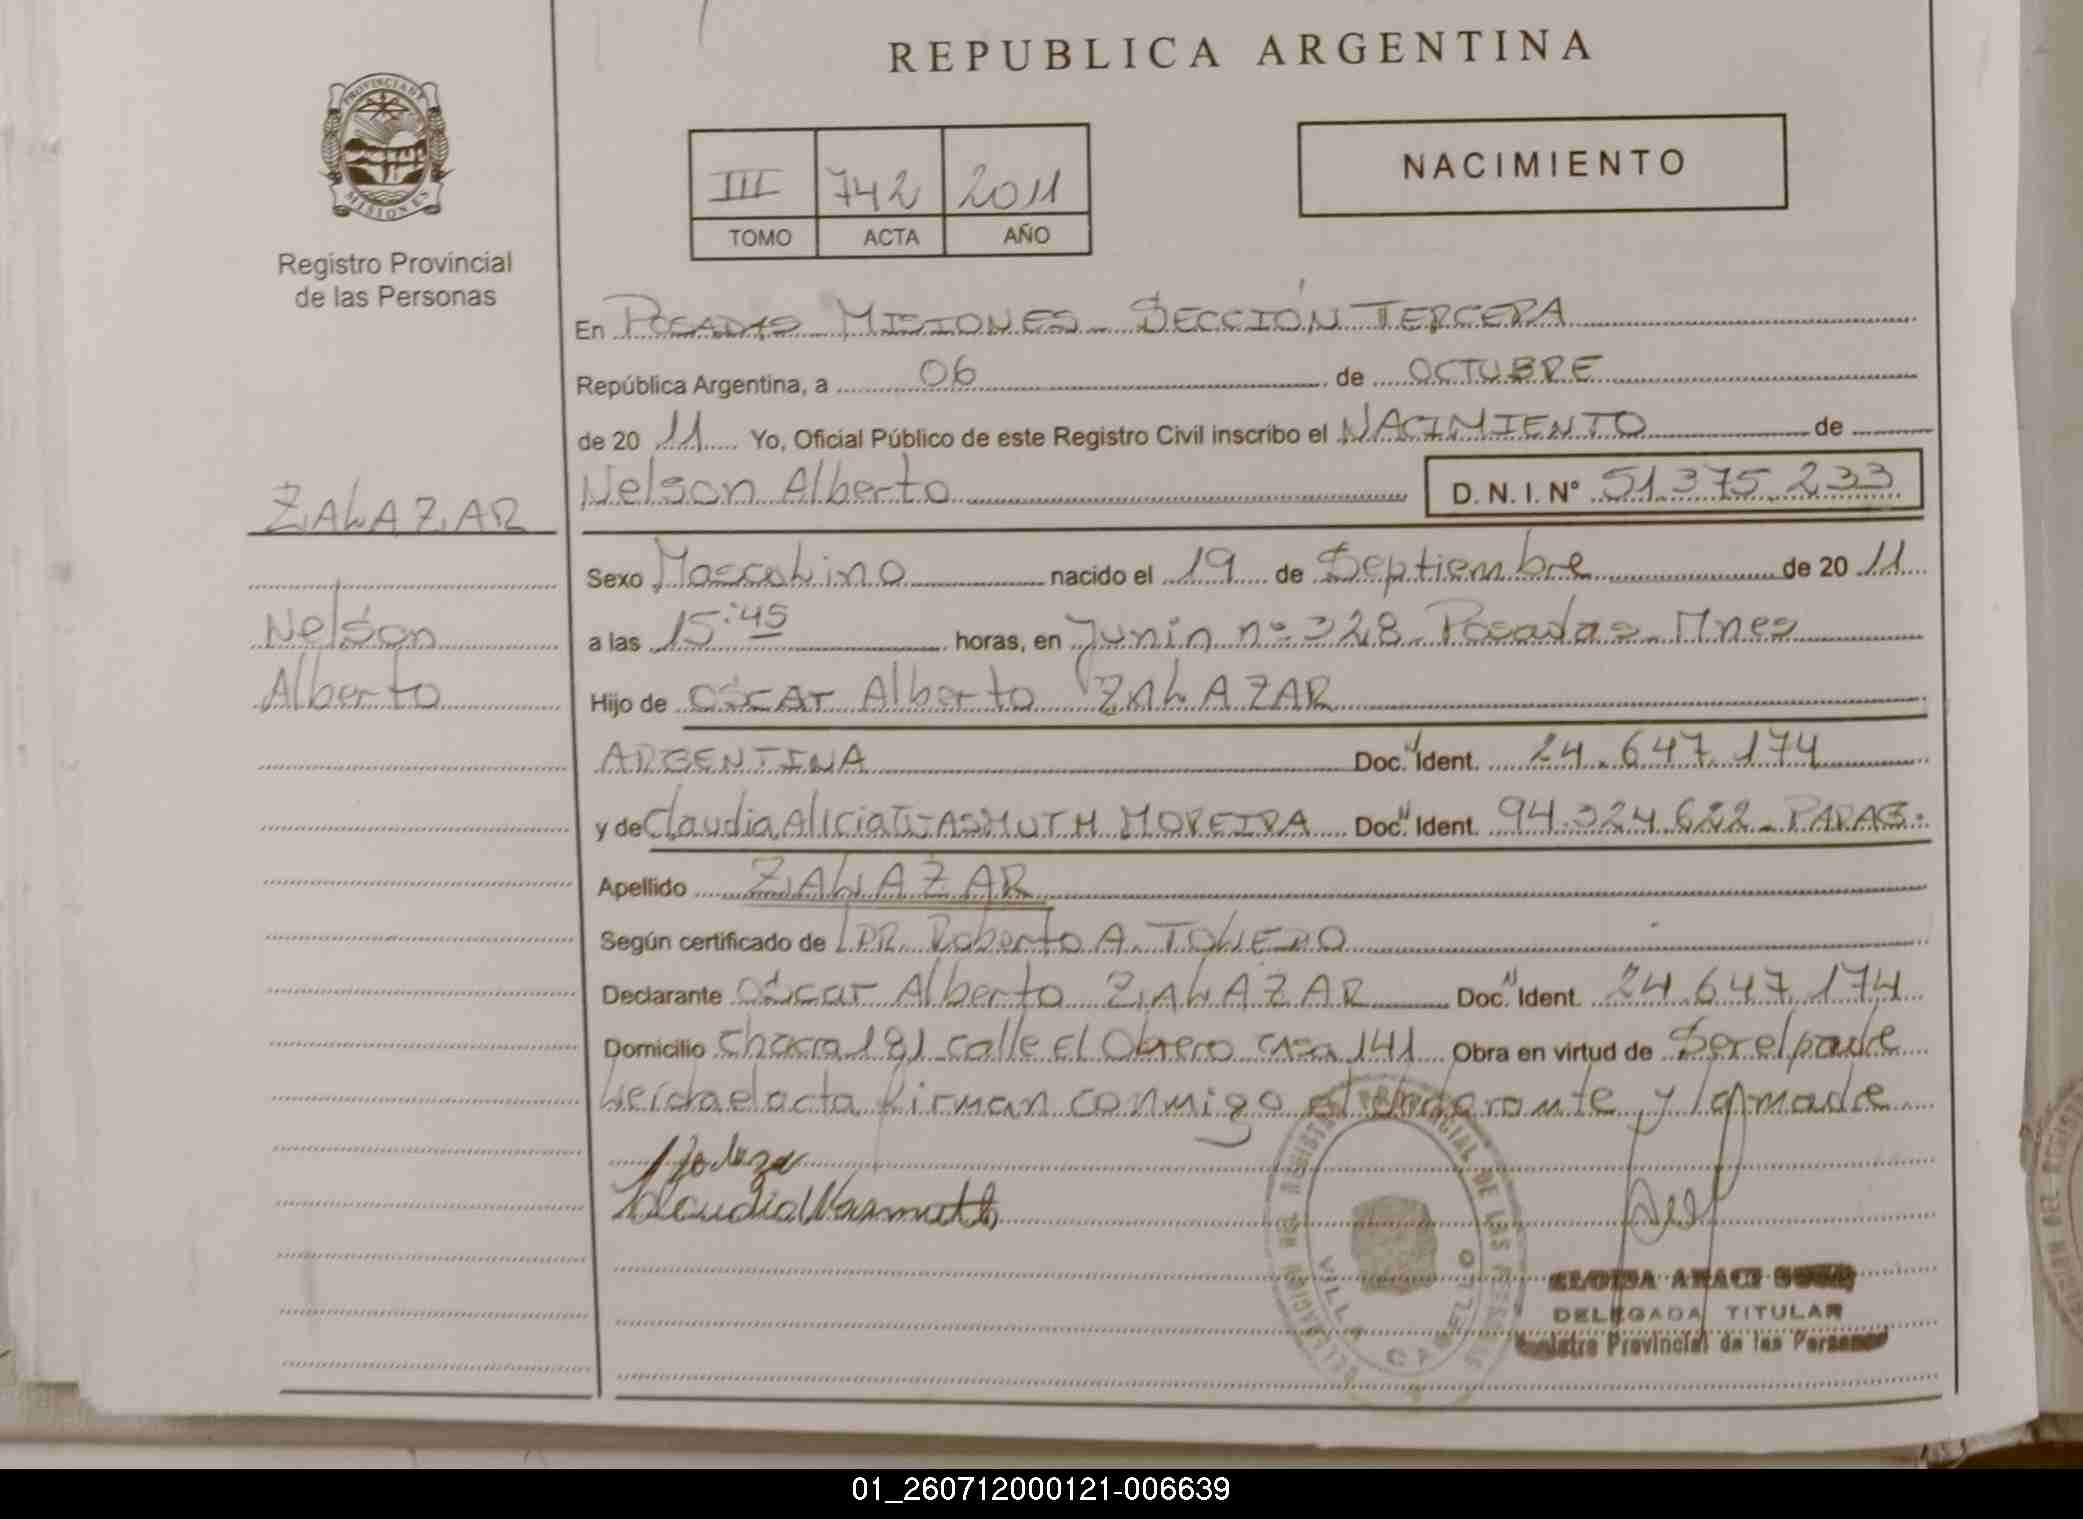 REPUBLICA ARGENTINA
PROVINCIA DE MISIONES
Registro Provincial
de las Personas
III 742 2011
TOMO ACTA AÑO
NACIMIENTO
En POSADAS MISIONES - SECCIÓN TERCERA
República Argentina, a 06 de OCTUBRE
de 20 11 Yo, Oficial Público de este Registro Civil inscribo el NACIMIENTO de
Nelson Alberto D. N. I. Nº 51.375.233
ZALAZAR
Nelson
Alberto
Sexo Masculino nacido el 19 de Septiembre de 20 11
a las 15:45 horas, en Junín nº 328 Posadas - Mnes
Hijo de OSCAR Alberto ZALAZAR
ARGENTINA Doc. Ident. 24.647.174
y de Claudia Alicia WASMUTH MOREIRA Doc. Ident. 94.324.622 - PARAG.
Apellido ZALAZAR
Según certificado de DR. Roberto A. TOLEDO
Declarante Oscar Alberto ZALAZAR Doc. Ident. 24.647.174
Domicilio Chacra 181 calle El Obrero casa 141 Obra en virtud de Ser el padre
Leída el acta firman conmigo el declarante y la madre
Claudia Wasmuth
DELEGACION DEL REGISTRO PROVINCIAL DE LAS PERSONAS
VILLA CABELLO
ELOISA ARACI
DELEGADA TITULAR
Registro Provincial de las Personas
01_260712000121-006639